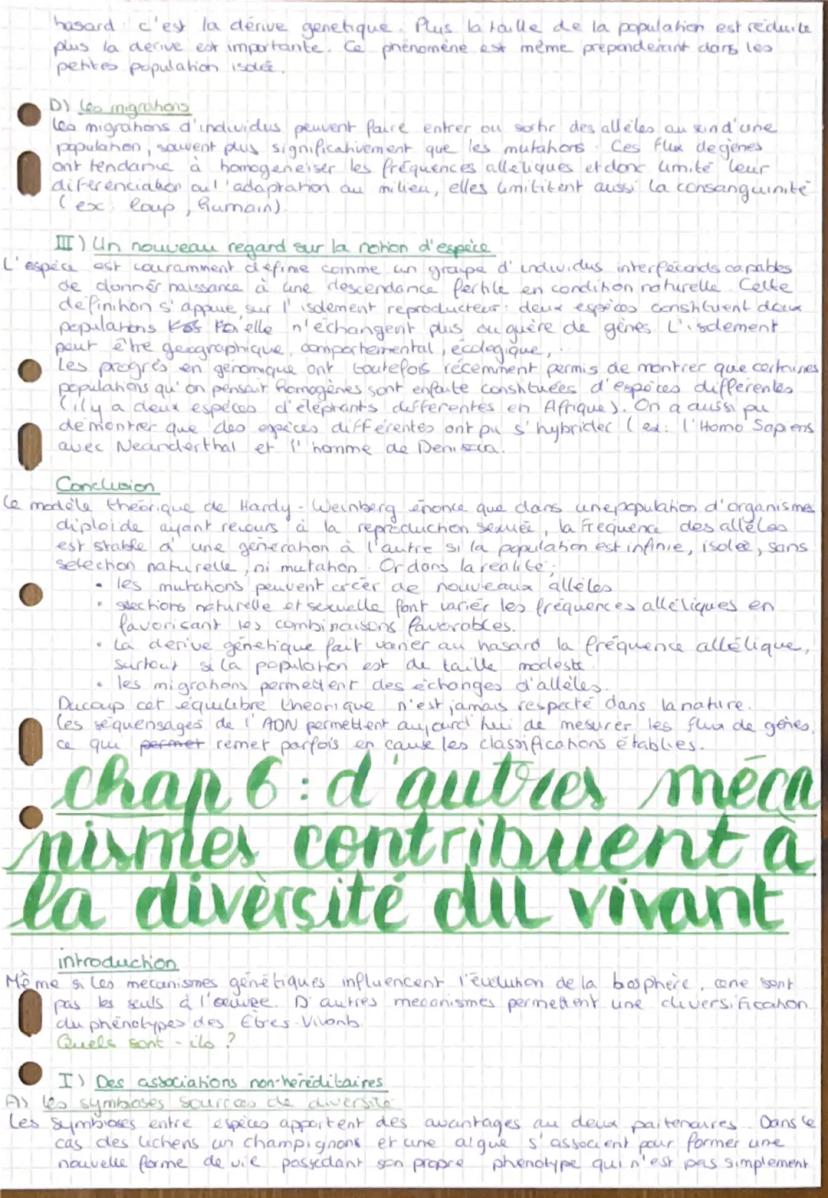 hasard : c'est la dérive génétique. Plus la taille de la population est réduite
plus la dérive est importante. Ce phénomène est même prépondérant dans les
petites population isolée.
D) Les migrations
Les migrations d'individus peuvent faire entrer ou sortir des allèles au sein d'une
population, souvent plus significativement que les mutations. Ces flux de gènes
ont tendance à homogénéiser les fréquences alléliques et donc limité leur
diférenciation ou l'adaptation au milieu, elles limititent aussi la consanguinité
(ex: loup, humain)
III) Un nouveau regard sur la notion d'espèce
L'espèce est couramment définie comme un groupe d'individus interféconds capables
de donner naissance à une descendance fertile en condition naturelle. Cette
définition s'appuie sur l'isolement reproducteur : deux espèces constituent deux
populations elle n'échangent plus ou guère de gènes. L'isolement
peut être géographique, comportemental, écologique, ...
Les progrès en génomique ont toutefois récemment permis de montrer que certaines
populations qu'on pensait homogènes sont enfaite constituées d'espèces différentes
(il y a deux espèces d'éléphants différentes en Afrique). On a aussi pu
démontrer que des espèces différentes ont pu s'hybrider (ex: l'Homo Sapiens
avec Néanderthal et l'homme de Denisova.
Conclusion
Le modèle théorique de Hardy-Weinberg énonce que dans une population d'organisme
diploïde ayant recours à la reproduction sexuée, la fréquence des allèles
est stable d'une génération à l'autre si la population est infinie, isolée, sans
sélection naturelle, ni mutation. Or dans la réalité :
• les mutations peuvent créer de nouveaux allèles
• sélections naturelle et sexuelle font varier les fréquences alléliques en
favorisant les combinaisons favorables.
• La dérive génétique fait varier au hasard la fréquence allélique,
surtout si la population est de taille modeste.
• les migrations permettent des échanges d'allèles.
Ducoup cet équilibre théorique n'est jamais respecté dans la nature.
Les séquensages de l'ADN permettent aujourd'hui de mesurer les flux de gènes,
ce qui permet remet parfois en cause les classifications établies.
chap 6 : d'autres méca
nismes contribuent à
la diversité du vivant
introduction
Même si les mécanismes génétiques influencent l'évolution de la biosphère, ce ne sont
pas les seuls à l'œuvre. D'autres mécanismes permettent une diversification
du phénotypes des Êtres-Vivants.
Quels sont-ils ?
I) Des associations non-héréditaires
A) Les symbioses sources de diversité
Les symbioses entre espèces apportent des avantages au deux partenaires. Dans le
cas des lichens un champignons et une algue s'associent pour former une
nouvelle forme de vie possédant son propre phénotype qui n'est pas simplement